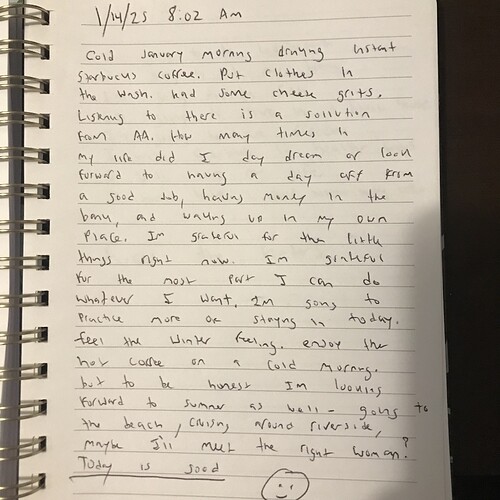 1/14/25 8:02 AM
Cold January morning drinking instant
Starbucks coffee. Put clothes in
the wash. had some cheese grits.
Listening to there is a sollution
from AA. How many times in
my life did I day dream or look
forward to having a day off from
a good job, having money in the
bank, and waking up in my own
place. Im grateful for the little
things right now. Im grateful
for the most part I can do
whatever I want. Im going to
practice more of staying in today.
feel the winter feeling. enjoy the
hot coffee on a cold morning.
but to be honest Im looking
forward to summer as well - going to
the beach, cruising around riverside,
maybe I'll meet the right woman?
Today is good